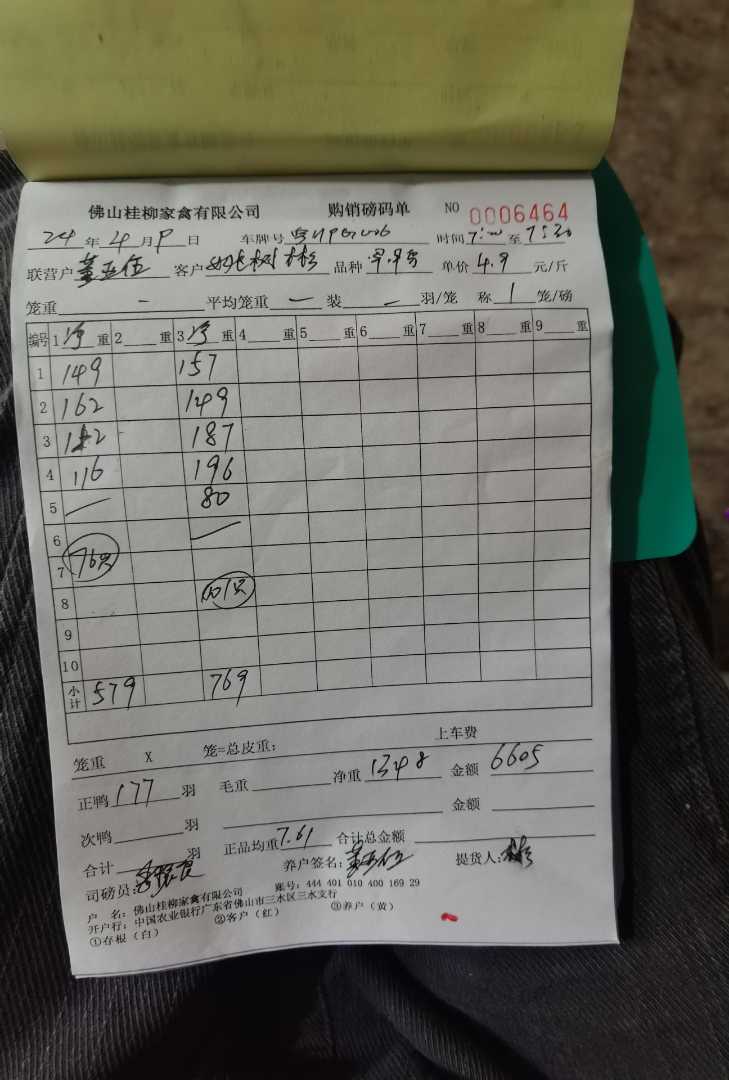 佛山桂柳家禽有限公司 购销磅码单 NO 0006464
24 年 4 月 9 日 车牌号 时间 7: 至 7:30
联营户 董五伍 客户 树彬 品种 单价 4.9 元/斤
笼重 — 平均笼重 — 装 — 羽/笼 称 1 笼/磅
编号 1 净 重 2 重 3 净 重 4 重 5 重 6 重 7 重 8 重 9 重
1 149 157
2 162 149
3 152 187
4 116 196
5 — 80
6 —
7 76只
8 101只
9
10
小计 579 769
笼重 X 笼=总皮重: 上车费
正鸭 177 羽 毛重 净重 1348 金额 6605
次鸭 羽 金额
合计 羽 正品均重 7.61 合计总金额
司磅员: 养户签名: 董五伍 提货人: 彬
户 名: 佛山桂柳家禽有限公司 账号: 444 401 010 400 169 29
开户行: 中国农业银行广东省佛山市三水区三水支行
①存根(白) ②客户(红) ③养户(黄)